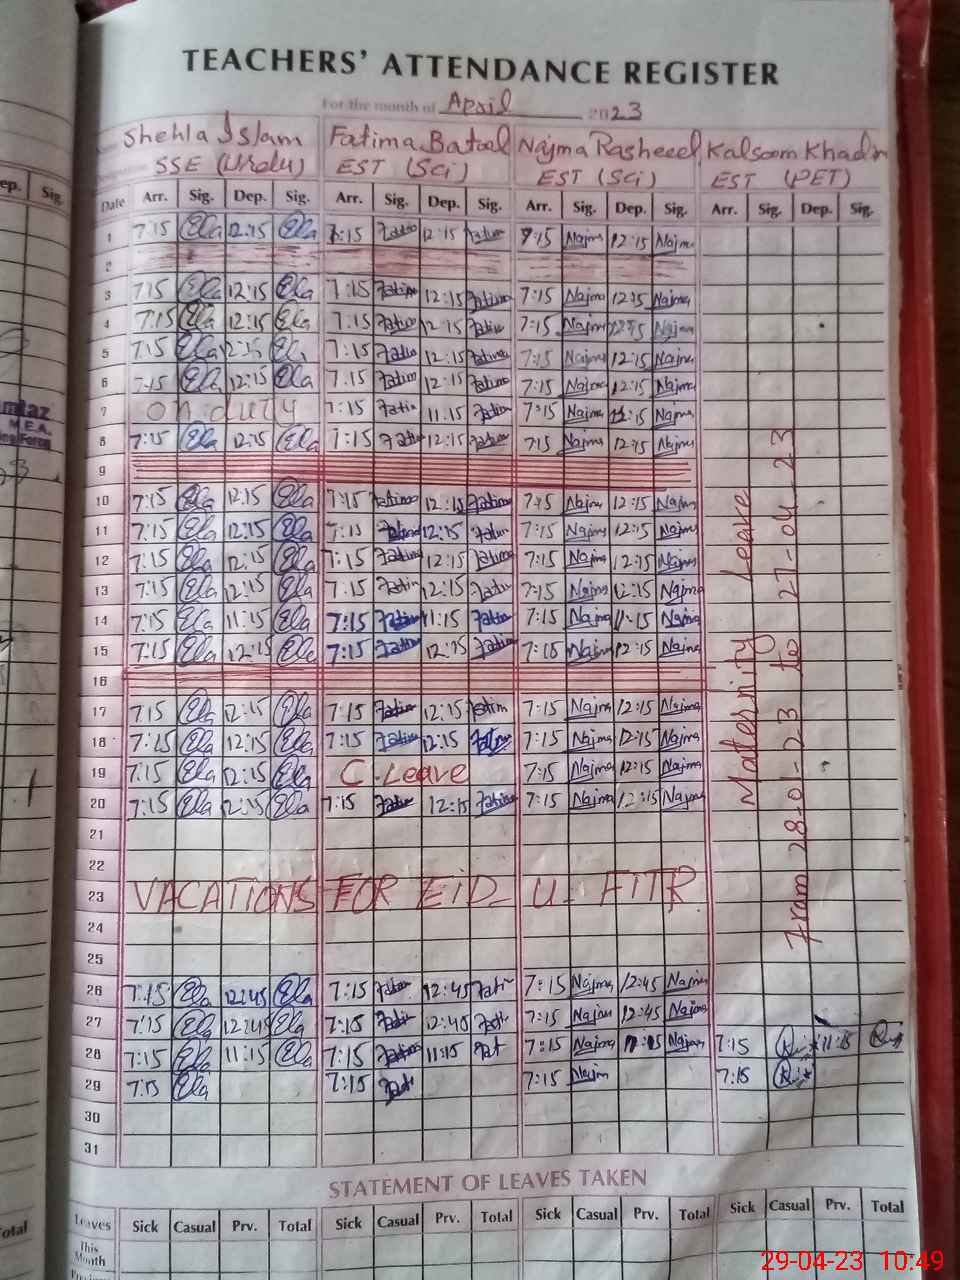 TEACHERS' ATTENDANCE REGISTER
For the month of April 2023
Shehla Islam Fatima Batool Najma Rasheed Kalsoom Khadim
SSE (Urdu) EST (Sci) EST (Sci) EST (PET)
Date Arr. Sig. Dep. Sig. Arr. Sig. Dep. Sig. Arr. Sig. Dep. Sig. Arr. Sig. Dep. Sig.
1 7:15 Ela 12:15 Ela 7:15 Fatima 12:15 Fatima 7:15 Najma 12:15 Najma
2
3 7:15 Ela 12:15 Ela 7:15 Fatima 12:15 Fatima 7:15 Najma 12:15 Najma
4 7:15 Ela 12:15 Ela 7:15 Fatima 12:15 Fatima 7:15 Najma 12:15 Najma
5 7:15 Ela 12:15 Ela 7:15 Fatima 12:15 Fatima 7:15 Najma 12:15 Najma
6 7:15 Ela 12:15 Ela 7:15 Fatima 12:15 Fatima 7:15 Najma 12:15 Najma
7 on duty 7:15 Fatima 11:15 Fatima 7:15 Najma 11:15 Najma
8 7:15 Ela 12:15 Ela 7:15 Fatima 12:15 Fatima 7:15 Najma 12:15 Najma
9
10 7:15 Ela 12:15 Ela 7:15 Fatima 12:15 Fatima 7:15 Najma 12:15 Najma
11 7:15 Ela 12:15 Ela 7:15 Fatima 12:15 Fatima 7:15 Najma 12:15 Najma
12 7:15 Ela 12:15 Ela 7:15 Fatima 12:15 Fatima 7:15 Najma 12:15 Najma
13 7:15 Ela 12:15 Ela 7:15 Fatima 12:15 Fatima 7:15 Najma 12:15 Najma
14 7:15 Ela 11:15 Ela 7:15 Fatima 11:15 Fatima 7:15 Najma 11:15 Najma
15 7:15 Ela 12:15 Ela 7:15 Fatima 12:15 Fatima 7:15 Najma 12:15 Najma
16
17 7:15 Ela 12:15 Ela 7:15 Fatima 12:15 Fatim 7:15 Najma 12:15 Najma
18 7:15 Ela 12:15 Ela 7:15 Fatima 12:15 Fatima 7:15 Najma 12:15 Najma
19 7:15 Ela 12:15 Ela C.Leave 7:15 Najma 12:15 Najma
20 7:15 Ela 12:15 Ela 7:15 Fatima 12:15 Fatima 7:15 Najma 12:15 Najma
21
22
23 VACATIONS FOR EID_ U_ FITR
24
25
26 7:15 Ela 12:45 Ela 7:15 Fatima 12:45 Fati 7:15 Najma 12:45 Najma
27 7:15 Ela 12:45 Ela 7:15 Fati 12:40 Fati 7:15 Najma 12:45 Najma
28 7:15 Ela 11:15 Ela 7:15 Fatima 11:15 Fat 7:15 Najma 11:15 Najma 7:15 11:15
29 7:15 Ela 7:15 Fati 7:15 Najm 7:15
30
31
Maternity Leave
From 28-01-23 to 27-04-23
STATEMENT OF LEAVES TAKEN
Leaves Sick Casual Prv. Total Sick Casual Prv. Total Sick Casual Prv. Total Sick Casual Prv. Total
This
Month
29-04-23 10:49